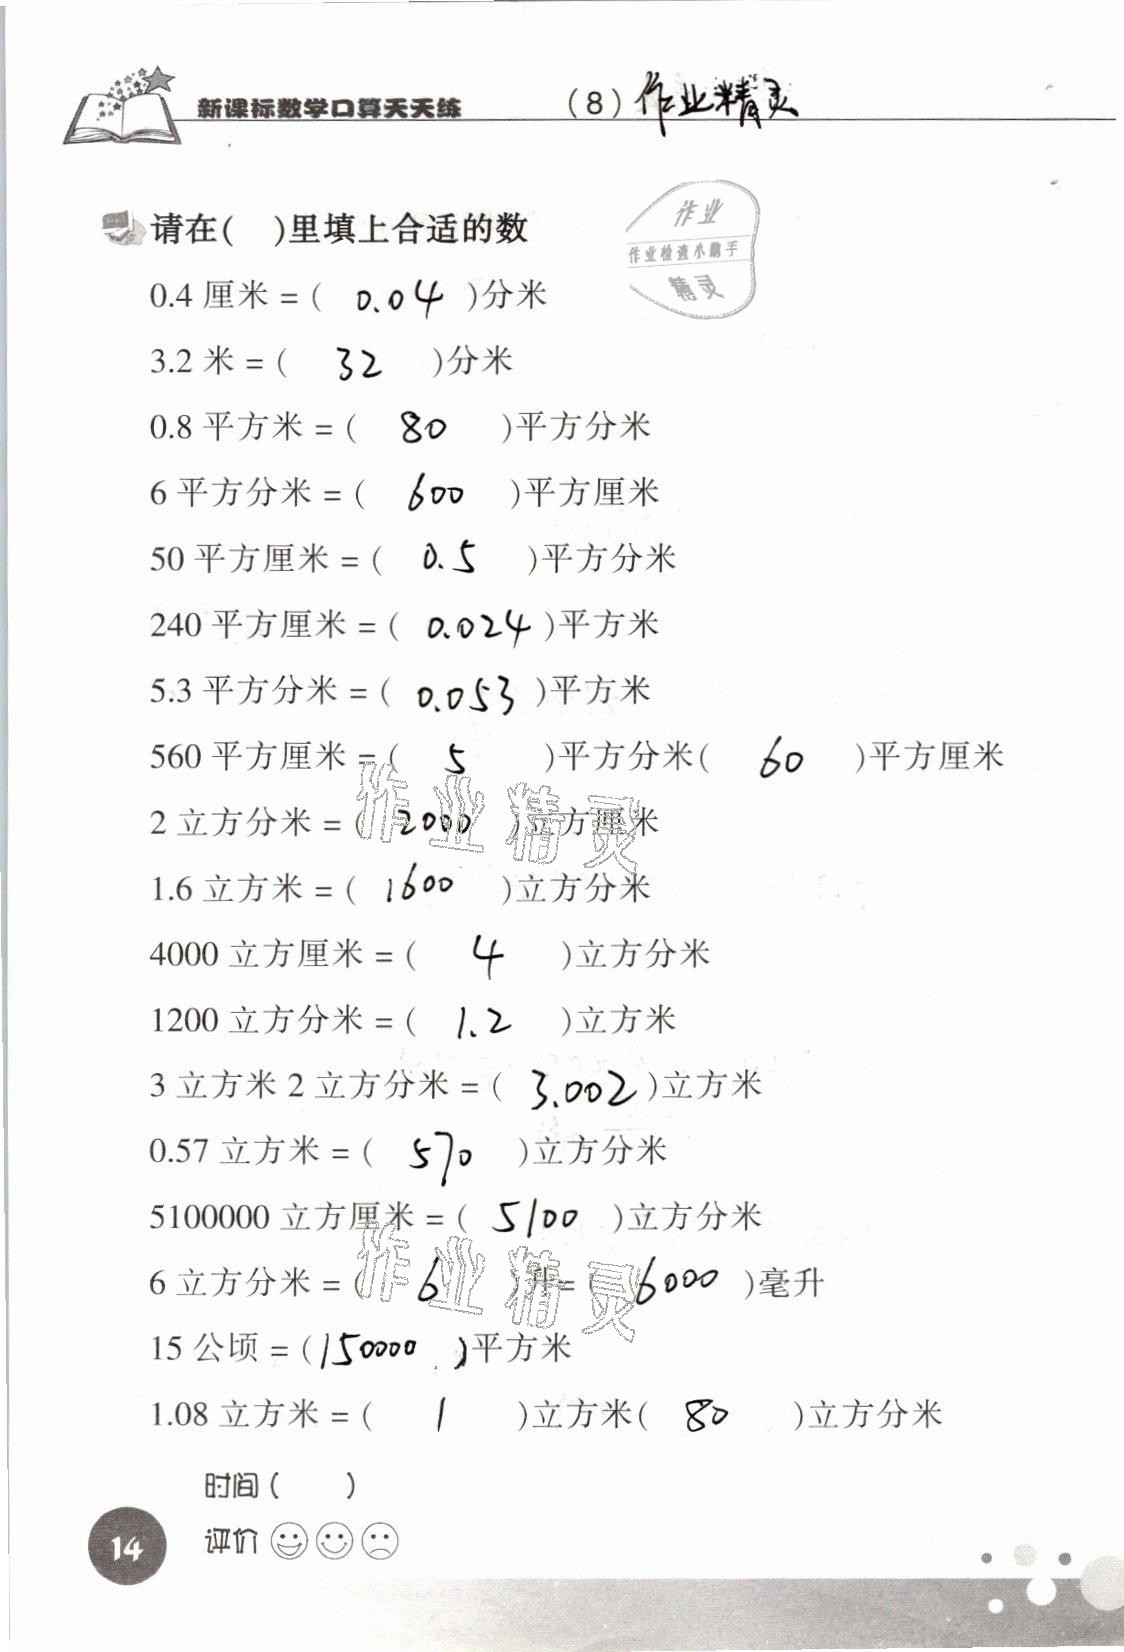 新课标数学口算天天练 (8) 作业精灵
请在( )里填上合适的数
作业
作业检查小助手
精灵
0.4厘米=( 0.04 )分米
3.2米=( 32 )分米
0.8平方米=( 80 )平方分米
6平方分米=( 600 )平方厘米
50平方厘米=( 0.5 )平方分米
240平方厘米=( 0.024 )平方米
5.3平方分米=( 0.053 )平方米
560平方厘米=( 5 )平方分米( 60 )平方厘米
2立方分米=( 2000 )立方厘米
作业精灵
1.6立方米=( 1600 )立方分米
4000立方厘米=( 4 )立方分米
1200立方分米=( 1.2 )立方米
3立方米2立方分米=( 3.002 )立方米
0.57立方米=( 570 )立方分米
5100000立方厘米=( 5100 )立方分米
作业精灵
6立方分米=( 6 )升=( 6000 )毫升
15公顷=(150000 )平方米
1.08立方米=( 1 )立方米( 80 )立方分米
时间( )
评价
14